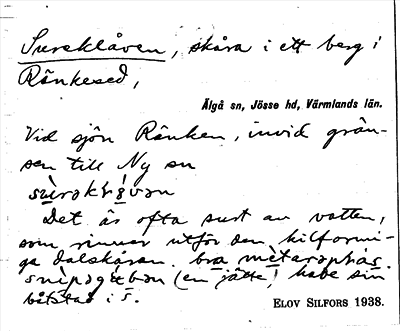 Sursklåven, skåra i ett berg i
Ränkesed,
Älgå sn, Jösse hd, Värmlands län.
Vid sjön Ränken, invid grän-
sen till Ny sn
Det är ofta surt av vatten,
som rinner utför den kilformi-
ga dalskåran.
(en jätte) hade sin
båtstad i S.
ELOV SILFORS 1938.